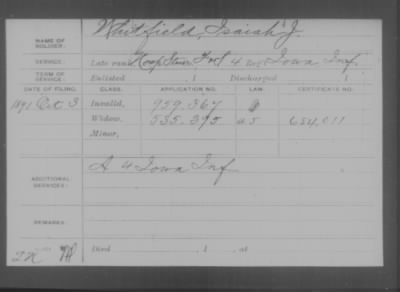 NAME OF SOLDIER: Whitfield, Isaiah J.
SERVICE: Late rank Hosp Stew. F&S 4 Reg't Iowa Inf.
TERM OF SERVICE: Enlisted , 1 Discharged , 1
DATE OF FILING. CLASS. APPLICATION NO. LAW. CERTIFICATE NO.
1891 Oct 3 Invalid, 959.367
Widow, 535.395 654.011
Minor,
ADDITIONAL SERVICES: A 4 Iowa Inf
REMARKS:
Died , 1 , at